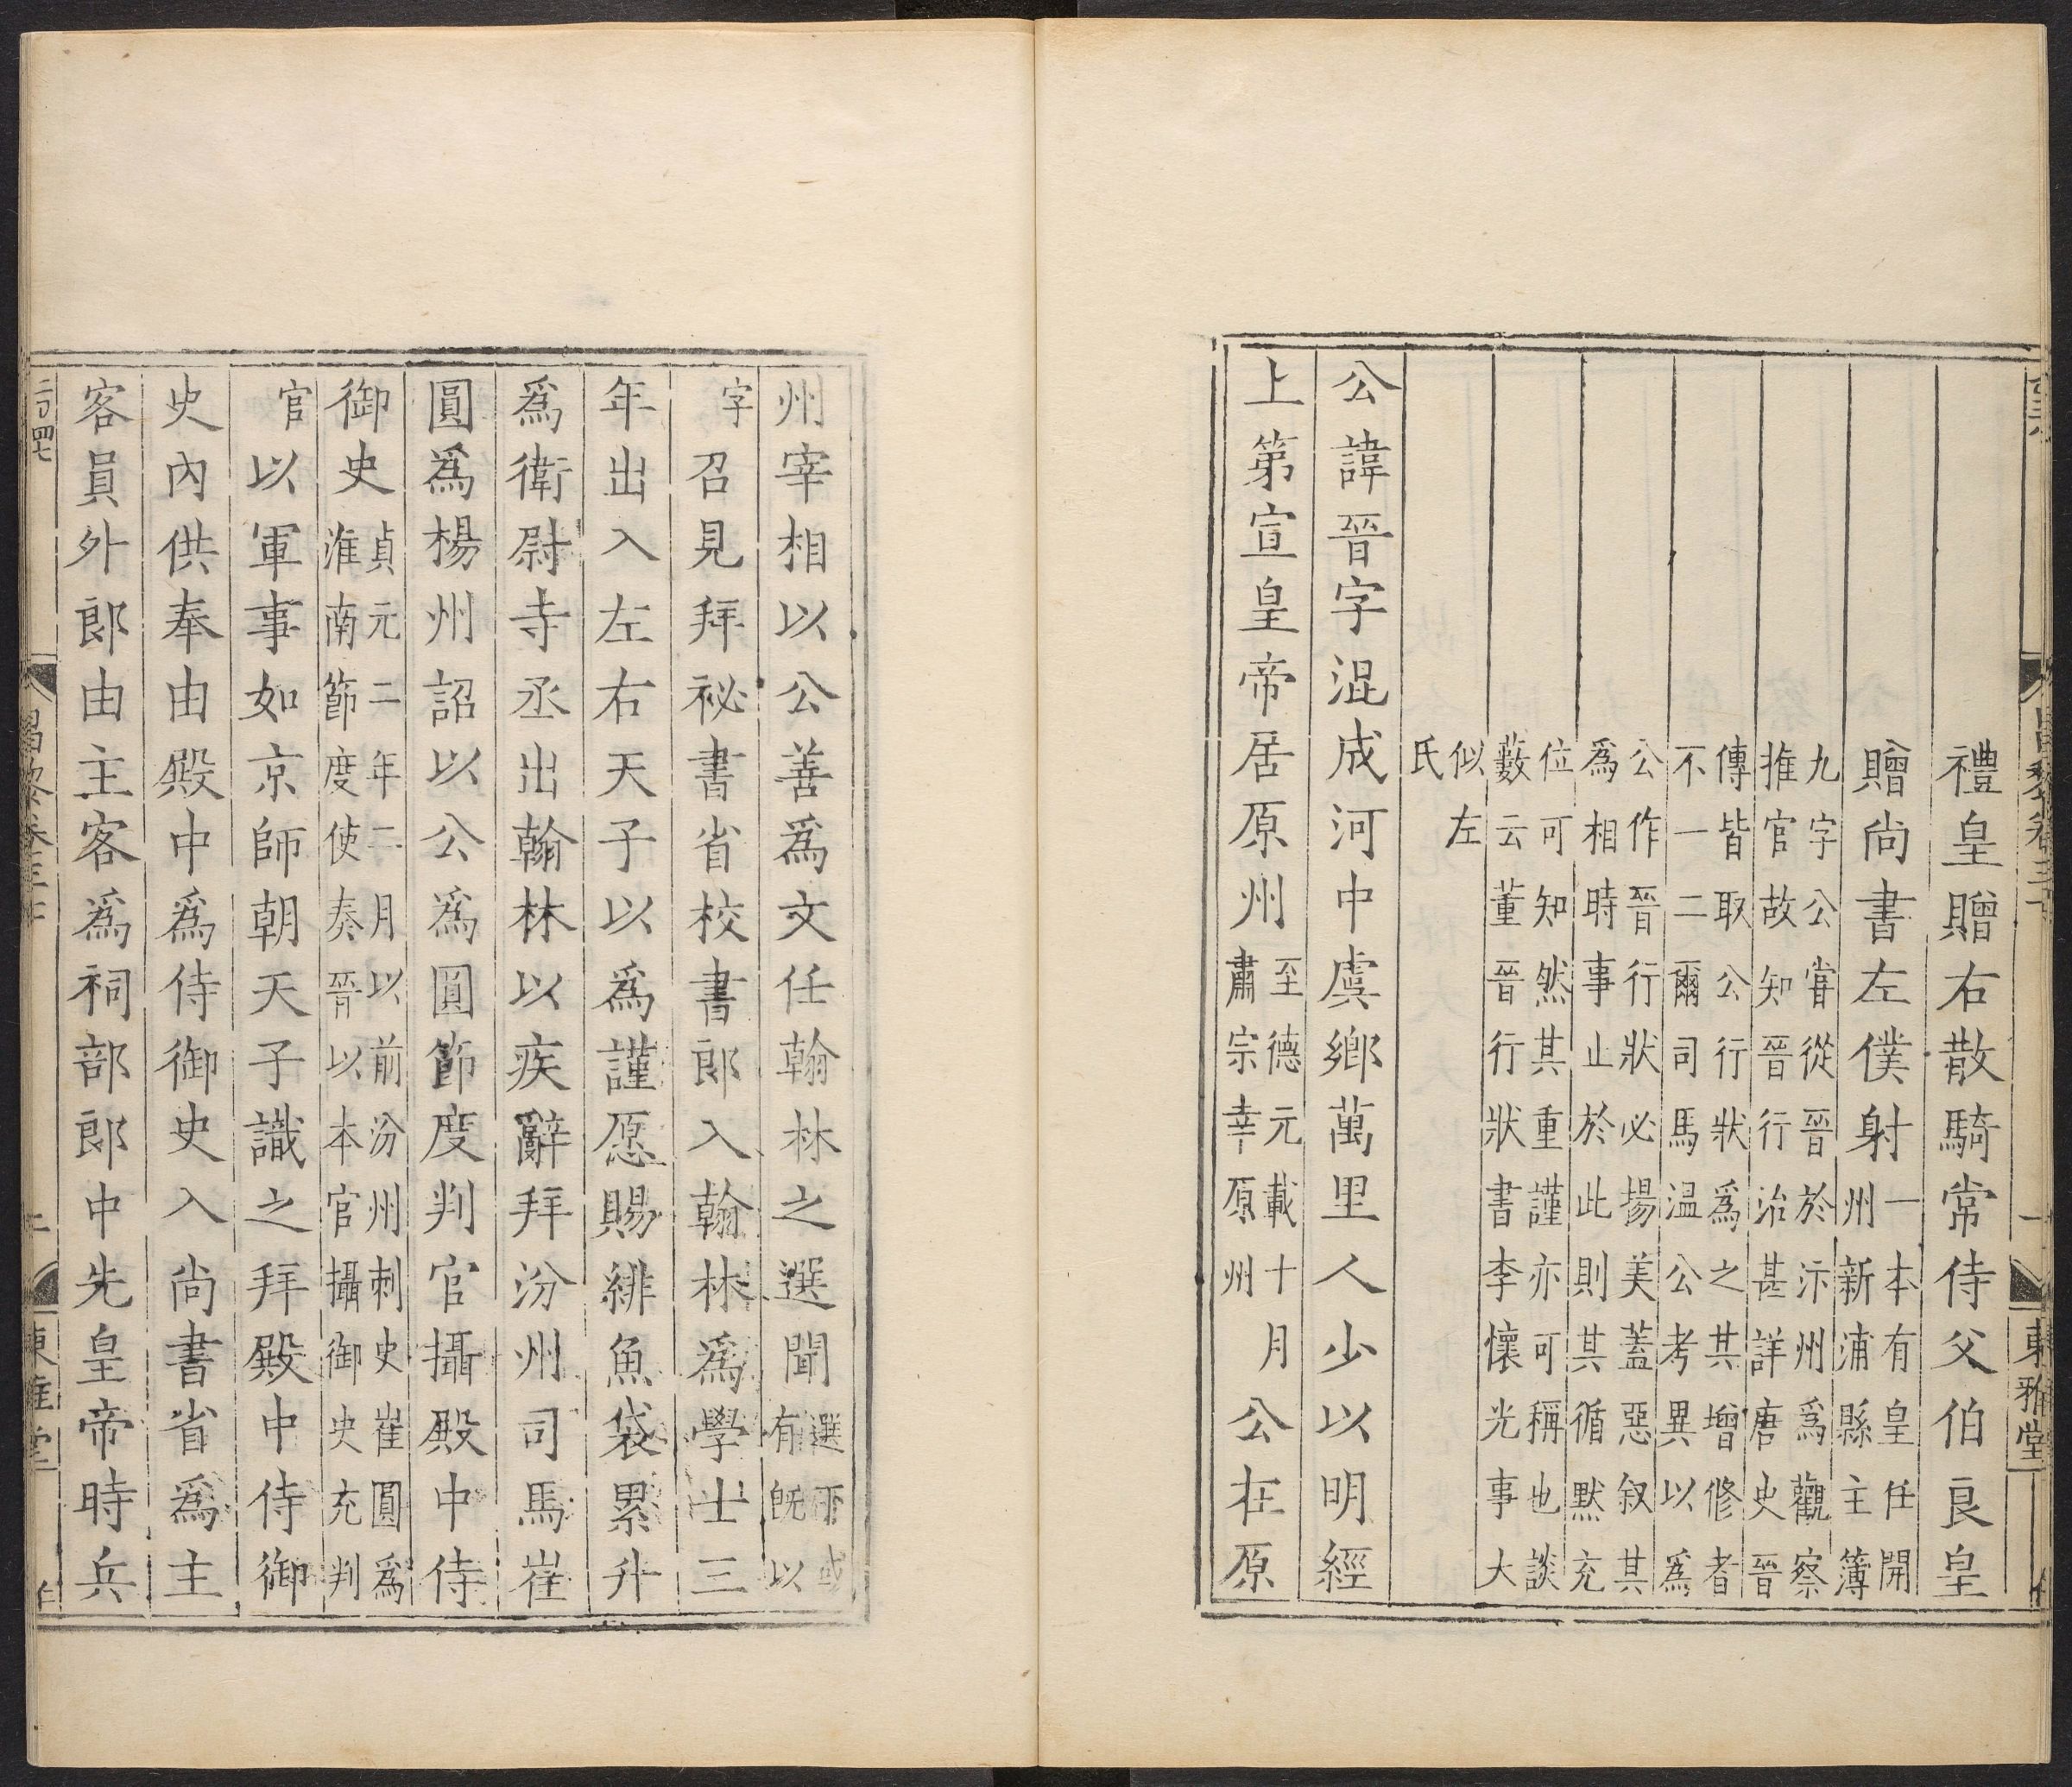 禮皇贈右散騎常侍父伯良皇
贈尚書左僕射一本有皇任開州新浦縣主簿
九字公嘗從晉於汴州爲觀察
推官故知晉行治甚詳唐史晉
傳皆取公行狀爲之其增修者
不一二爾司馬温公考異以爲
公作晉行狀必揚美蓋惡叙其
爲相時事止於此則其循默充
位可知然其重謹亦可稱也談
藪云董晉行狀書李懷光事大
似左
氏
公諱晉字混成河中虞鄉萬里人少以明經
上第宣皇帝居原州至德元載十月肅宗幸原州公在原
州宰相以公善爲文任翰林之選聞選下或有旣以
字召見拜祕書省校書郎入翰林爲學士三
年出入左右天子以爲謹愿賜緋魚袋累升
爲衛尉寺丞出翰林以疾辭拜汾州司馬崔
圓爲楊州詔以公爲圓節度判官攝殿中侍
御史貞元二年二月以前汾州刺史崔圓爲淮南節度使奏晉以本官攝御史充判
官以軍事如京師朝天子識之拜殿中侍御
史內供奉由殿中爲侍御史入尚書省爲主
客員外郎由主客爲祠部郎中先皇帝時兵
昌黎卷三十七
二
東雅堂
東雅堂